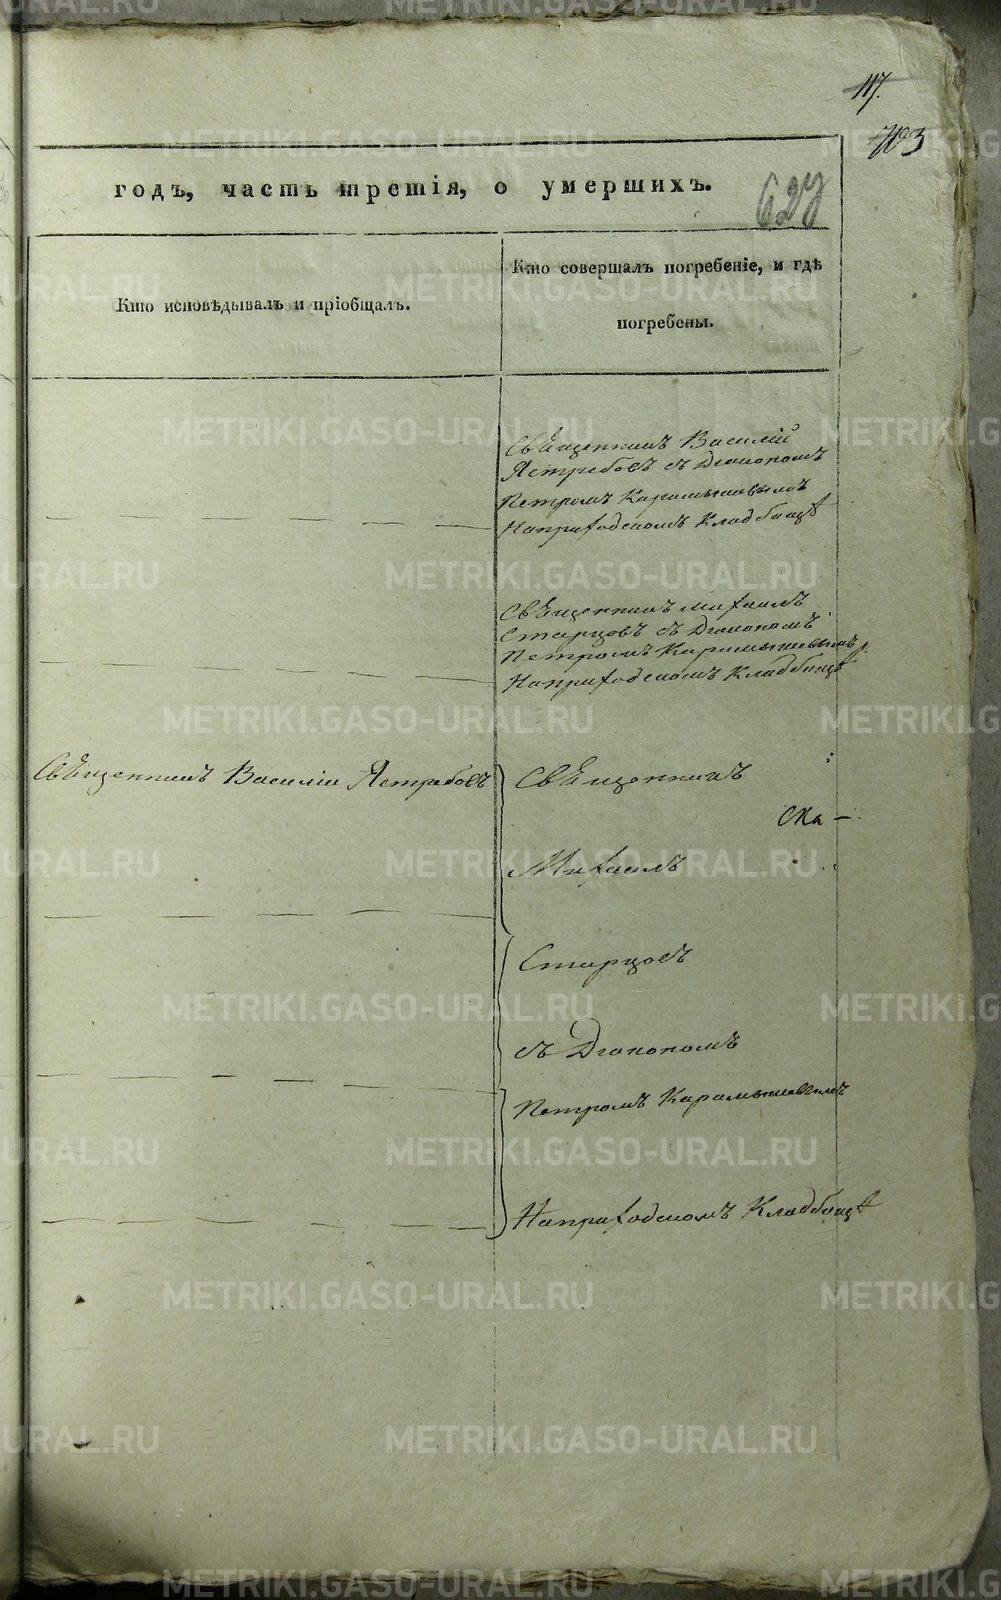 117.
703
годъ, часть третія, о умершихъ.
627
Кто исповѣдывалъ и пріобщалъ.
Кто совершалъ погребеніе, и гдѣ
погребены.
Священникъ Василій
Ястребовъ съ Діакономъ
Петромъ Карамышевымъ
На приходскомъ Кладбищѣ
Священникъ Михаилъ
Старцовъ съ Діакономъ
Петромъ Карамышевымъ
На приходскомъ Кладбищѣ
Свѧщенникъ Василіи Ястребовъ
Священникъ
Ска -
Михаилъ
Старцовъ
съ Діакономъ
Петромъ Карамышевымъ
На приходскомъ Кладбищѣ
METRIKI.GASO-URAL.RU